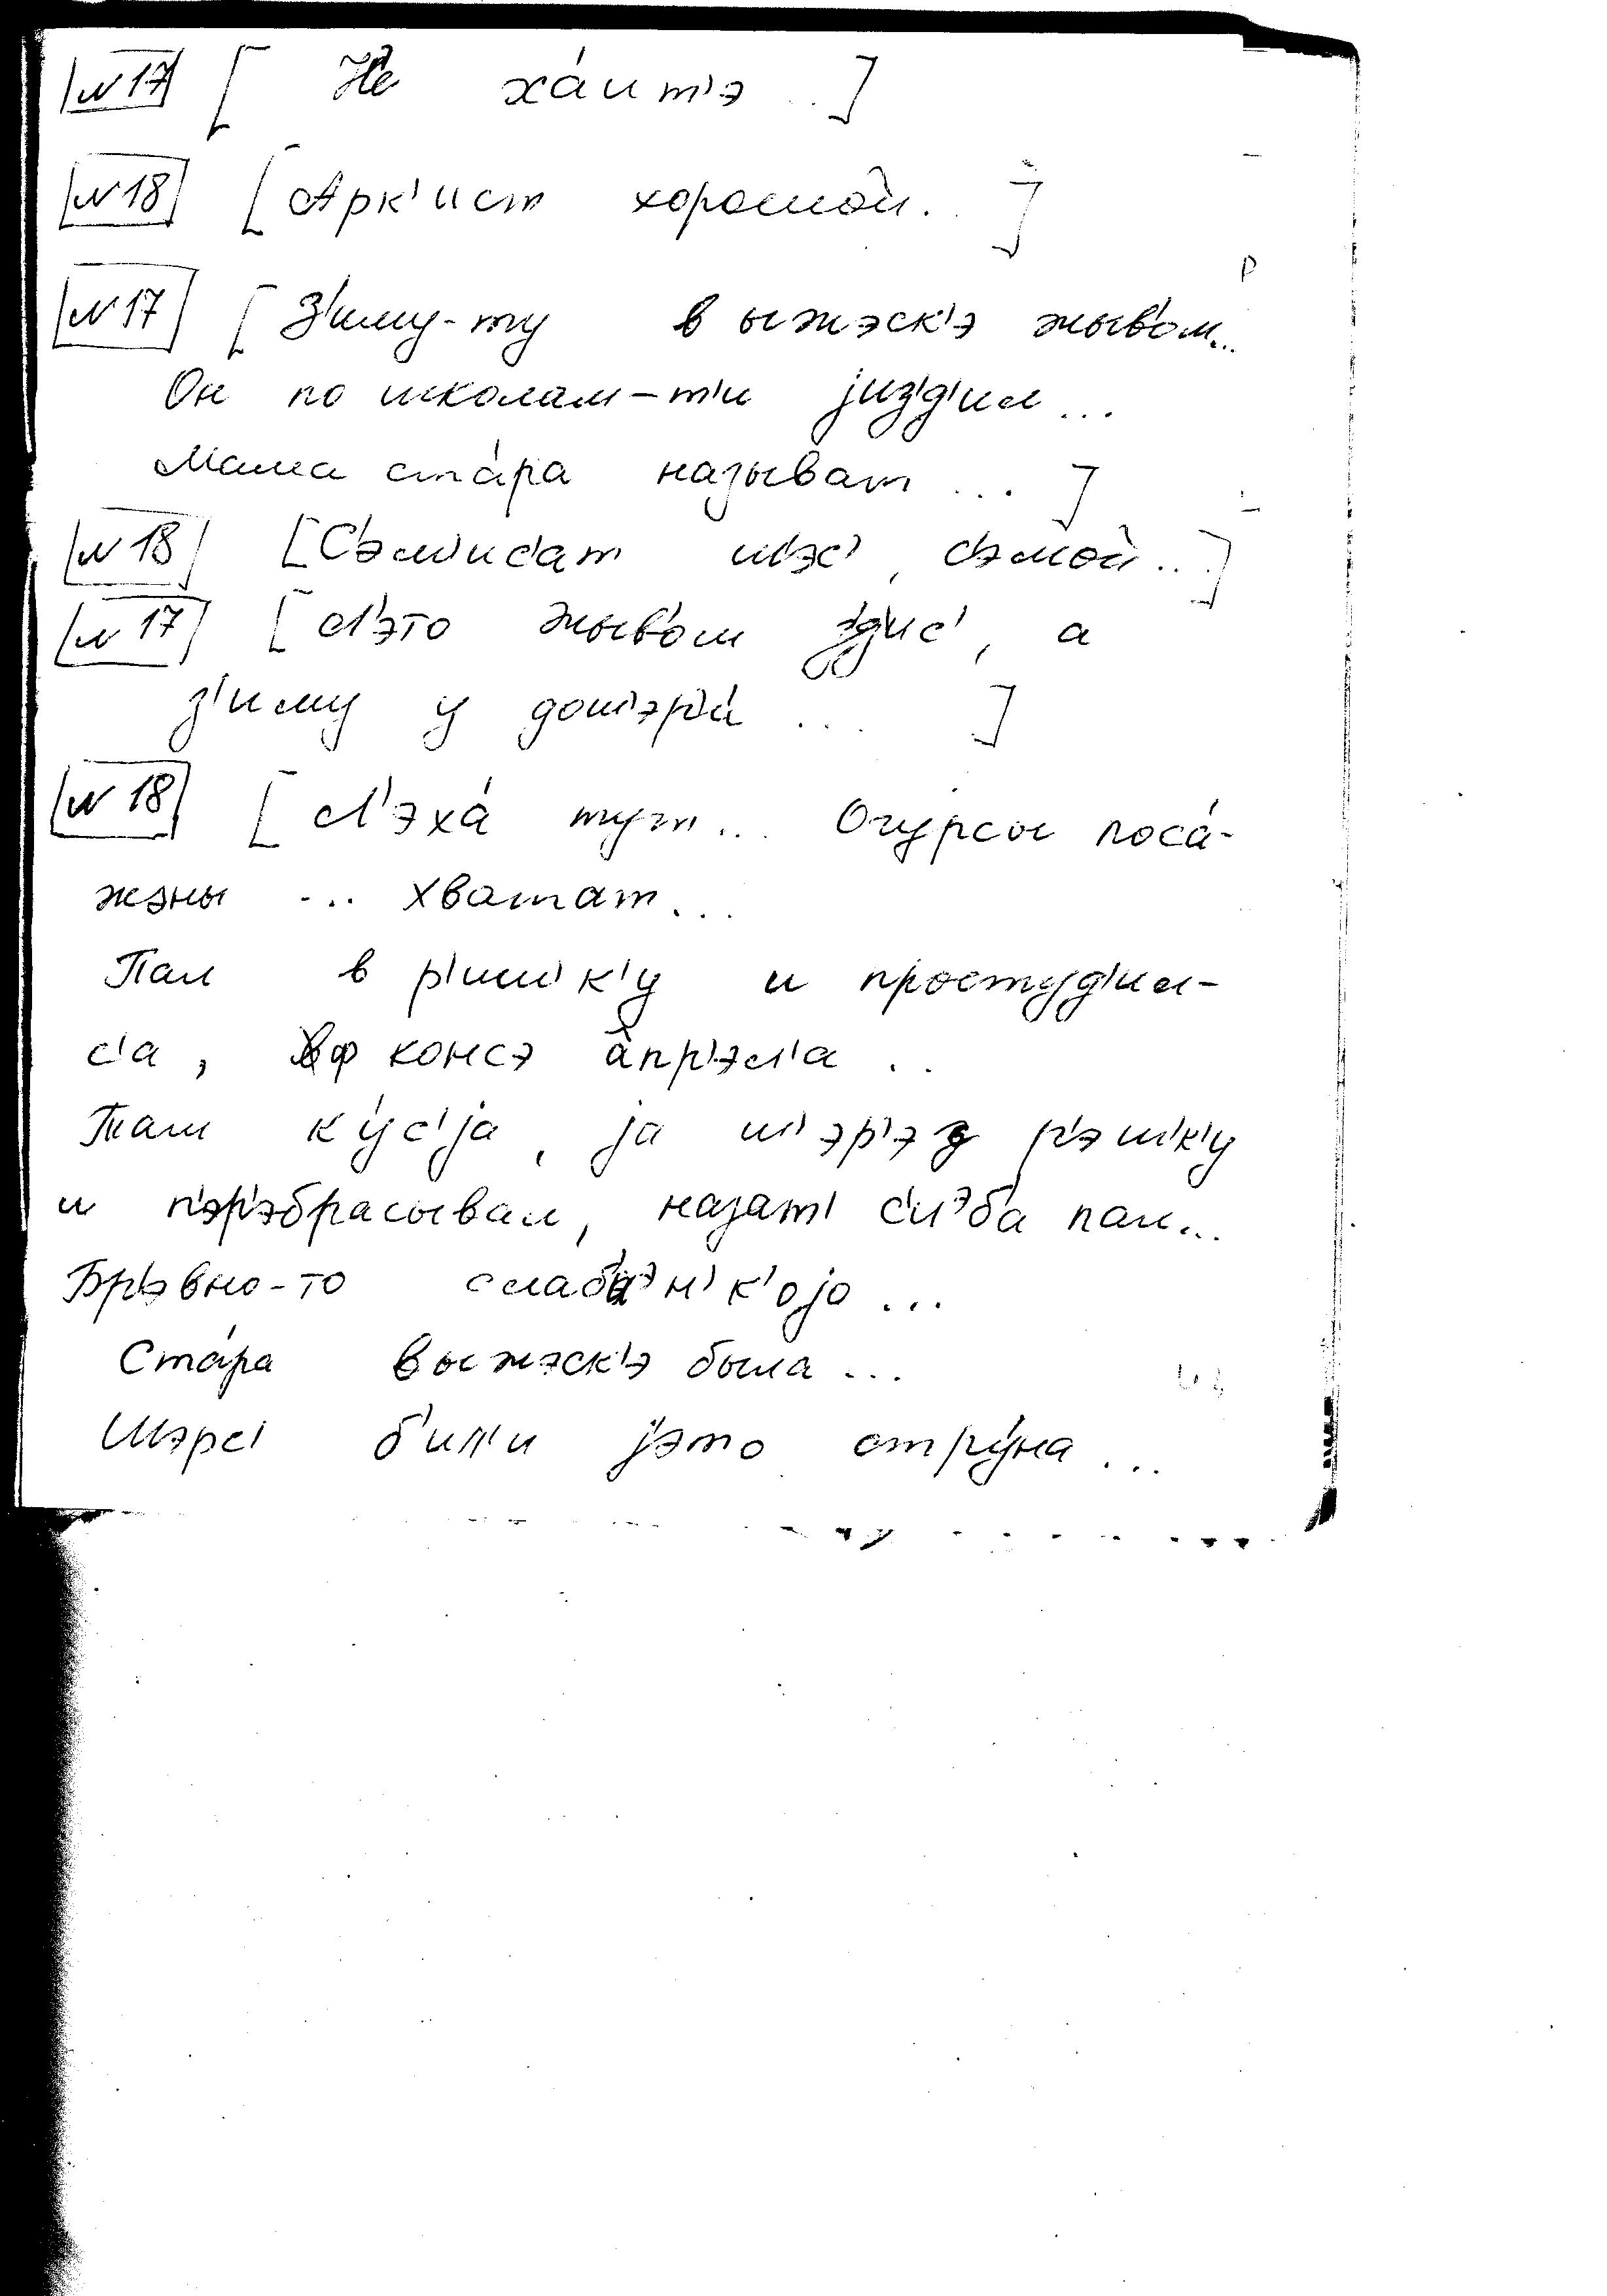 №17 [ Не ха́ит'э ..]
№18 [Арк'ист хорошо́й. ]
№17 [З'иму-ту в ыжэск'э жыв'ом...
Он по школам-т'и jиз'д'ил ...
Мама ста́ра называт ... ]
№18 [С'эм'ис'ат ш'эс', с'эмо́й...]
№17 [Л'это жыв'ом з'д'ис', а
з'иму у доч'эр'и́ ... ]
№18 [Л'эха́ тут... Огурсы поса́-
жэны ... хватат...
Пал в р'иш'к'у и простуд'ил-
с'а, ф консэ апр'эл'а ..
Там ку́с'jа, jа ш'эр'эз р'эш'к'у
и п'эр'эбрасывал, назат' с'иэб'а пал...
Бр'эвно-то слаб'эн'к'оjо ...
Ста́ра выжэск'э была ...
Шэрс' б'ил'и jэто стру́на ...